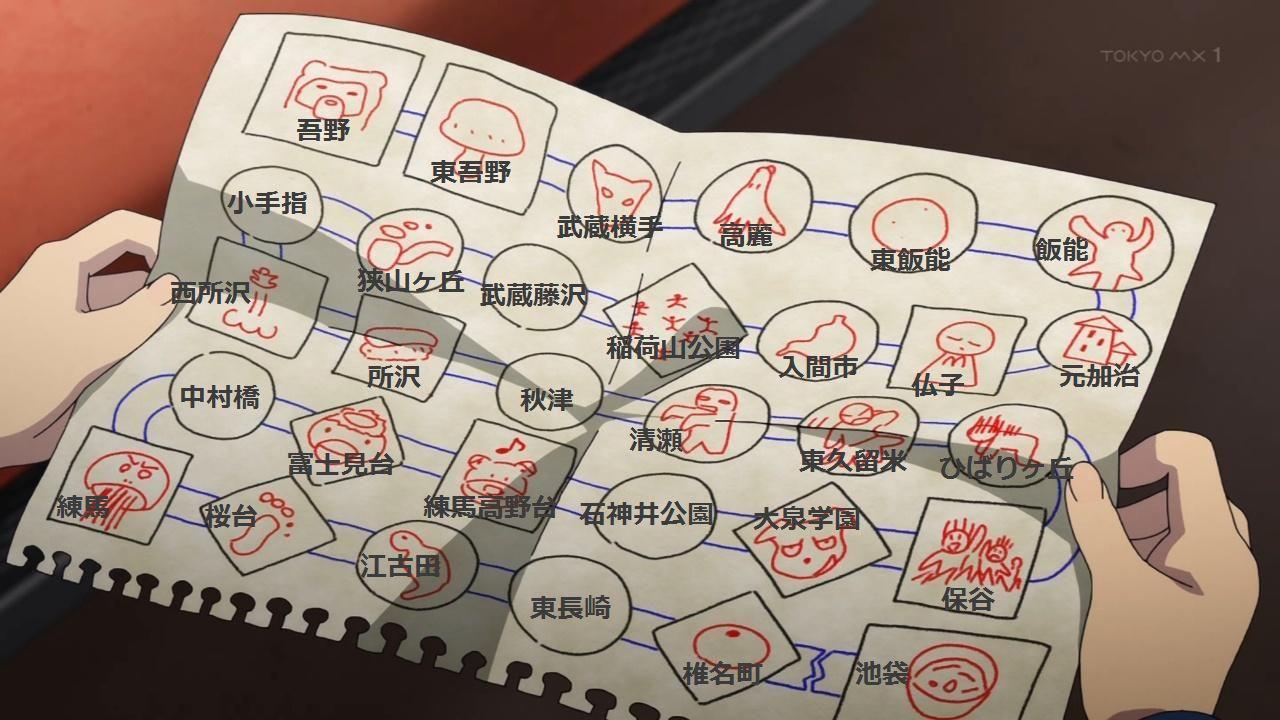 TOKYO MX 1
吾野
東吾野
武蔵横手
高麗
東飯能
飯能
小手指
狭山ヶ丘
武蔵藤沢
稲荷山公園
入間市
仏子
元加治
西所沢
所沢
秋津
清瀬
東久留米
ひばりヶ丘
中村橋
富士見台
練馬高野台
石神井公園
大泉学園
保谷
練馬
桜台
江古田
東長崎
椎名町
池袋